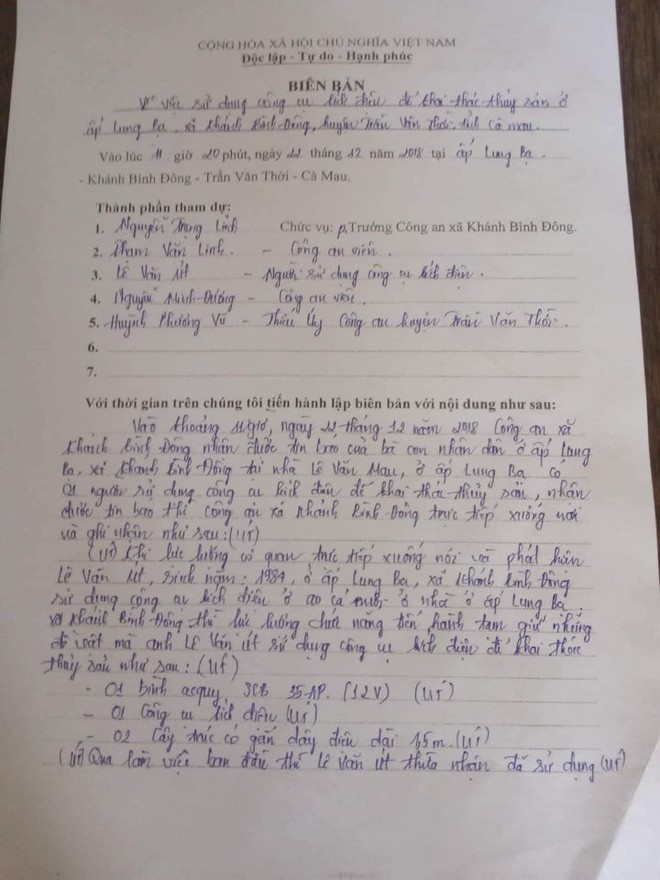 CỘNG HÒA XÃ HỘI CHỦ NGHĨA VIỆT NAM
Độc lập - Tự do - Hạnh phúc
BIÊN BẢN
V/v việc sử dụng công cụ kích điện để khai thác thủy sản ở
ấp Lung Bạ, xã Khánh Bình Đông, huyện Trần Văn Thời, tỉnh Cà Mau.
Vào lúc 11 giờ 20 phút, ngày 22 tháng 12 năm 2018 tại ấp Lung Bạ.
- Khánh Bình Đông - Trần Văn Thời - Cà Mau.
Thành phần tham dự:
1. Nguyễn Trọng Linh Chức vụ: p.Trưởng Công an xã Khánh Bình Đông.
2. Phạm Văn Linh. - Công an viên.
3. Lê Văn Út - Người sử dụng công cụ kích điện.
4. Nguyễn Minh Đương - Công an viên.
5. Huỳnh Phương Vũ - Thiếu Úy Công an huyện Trần Văn Thời.
6.
7.
Với thời gian trên chúng tôi tiến hành lập biên bản với nội dung như sau:
Vào khoảng giờ, ngày 22 tháng 12 năm 2018 Công an xã
Khánh Bình Đông nhận được tin báo của bà con nhân dân ở ấp Lung
Bạ, xã Khánh Bình Đông tại nhà Lê Văn Mau, ở ấp Lung Bạ có
01 người sử dụng công cụ kích điện để khai thác thủy sản, nhận
được tin báo thì công an xã Khánh Bình Đông trực tiếp xuống nơi
và ghi nhận như sau: (Út)
(Út) Khi lực lượng có quan trực tiếp xuống nơi và phát hiện
Lê Văn Út, sinh năm: 1984, ở ấp Lung Bạ, xã Khánh Bình Đông
sử dụng công cụ kích điện ở ao cá ở nhà ở ấp Lung Bạ
xã Khánh Bình Đông thì lực lượng chức năng tiến hành tạm giữ những
đồ vật mà anh Lê Văn Út sử dụng công cụ kích điện để khai thác
thủy sản như sau: (Út)
- 01 bình acquy, 35 AP. (12V) (Út)
- 01 Công cụ kích điện (Út)
- 02 Cây trúc có gắn dây điện dài 1,5m. (Út)
(Út) Qua làm việc ban đầu thì Lê Văn Út thừa nhận đã sử dụng (Út)